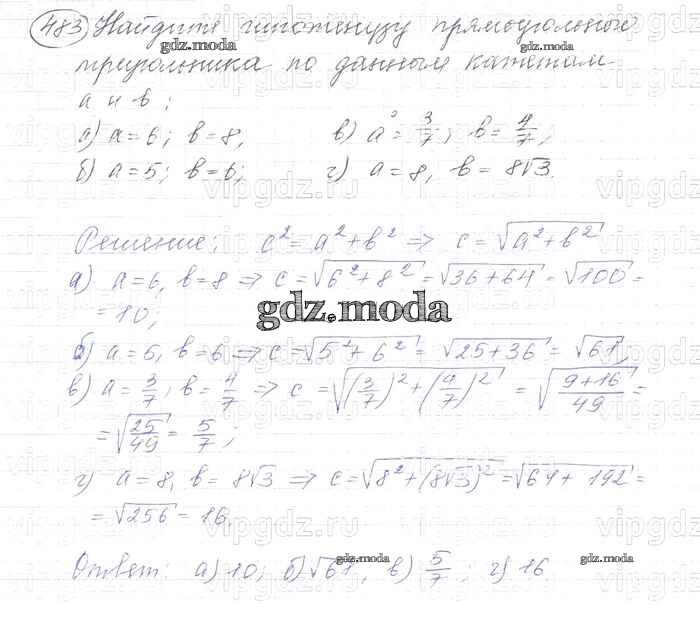 483) Найдите гипотенузу прямоугольного
gdz.moda gdz.moda
треугольника по данным катетам
a и b;
а) a = 6; b = 8, в) a = 3/7; b = 4/7;
б) a = 5; b = 6; г) a = 8, b = 8√3.
Решение; c² = a² + b² => c = √(a² + b²)
а) a = 6, b = 8 => c = √(6² + 8²) = √(36 + 64) = √100 =
= 10;
gdz.moda
б) a = 5, b = 6 => c = √(5² + 6²) = √(25 + 36) = √61,
в) a = 3/7; b = 4/7 => c = √((3/7)² + (4/7)²) = √((9+16)/49) =
= √(25/49) = 5/7;
г) a = 8, b = 8√3 => c = √(8² + (8√3)²) = √(64 + 192) =
= √256 = 16.
gdz.moda gdz.moda
Ответ: а) 10; б) √61, в) 5/7; г) 16.
gdz.moda
vipgdz.ru